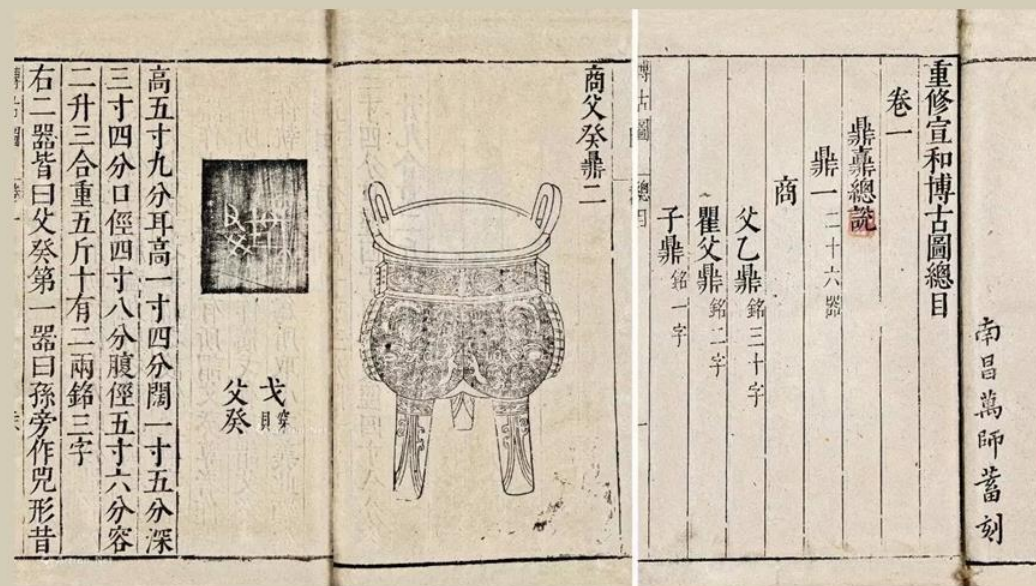 南昌萬師蓄刻
重修宣和博古圖總目
卷一
鼎鼒總說
鼎一 二十六器
商
父乙鼎 銘三十字
瞿父鼎 銘二字
子鼎 銘一字
商父癸鼎二
戈 穿貝
父癸
高五寸九分耳高一寸四分闊一寸五分深
三寸四分口俓四寸八分腹俓五寸六分容
二升三合重五斤十有二兩銘三字
右二器皆曰父癸第一器曰孫旁作兕形昔